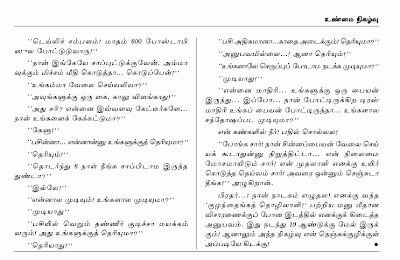 உண்மை நிகழ்வு
''டெய்லிச் சம்பளம்! மாதம் 600 போஸ்டாபி
ஸுல போட்டுடுவாரு!''
''நான் இங்கேயே சாப்பிட்டுக்குவேன். அம்மா
வுக்கும் மிச்சம் மீதி கொடுத்தா... கொடுப்பேன்!''
''உங்கம்மா வேலை செய்யலியா?''
''அவுங்களுக்கு ஒரு கை, காலு விளங்காது!''
''அது சரி? என்னை இவ்வளவு கேட்டீர்களே...
நான் உங்களைக் கேக்கட்டுமா?''
''கேளு!''
''பசின்னா... என்னான்னு உங்களுக்குத் தெரியுமா?''
''தெரியும்!''
''தொடர்ந்து 6 நாள் நீங்க சாப்பிடாம இருந்த
துண்டா?''
''இல்லே!''
''என்னால முடியும்! உங்களால முடியுமா?''
''முடியாது''
''பசியில் வெறும் தண்ணீர் குடிச்சா மயக்கம்
வரும்! அது உங்களுக்குத் தெரியுமா?''
''தெரியாது!''
''பசி அதிகமானா...காதை அடைக்கும்! தெரியுமா?''
''அனுபவமில்லை...! ஆனா தெரியும்!''
''உங்களாலே செருப்புப் போடாம நடக்க முடியுமா?''
''முடியாது!''
''என்னை மாதிரி... உங்களுக்கு ஒரு பையன்
இருந்து... இப்போ... நான் போட்டிருக்கிற டிரஸ்
மாதிரி உங்கப் பையன் போட்டிருந்தா... உங்களால
சந்தோஷப்பட முடியுமா?''
என் கண்களில் நீர்! பதில் சொல்லல!
''போங்க சார்! நான் சின்னப்பையன் வேலை செய்
யக் கூடாதுன்னு நிறுத்திட்டா... என் நிலைமை
மோசமாயிடும் சார்! என் முதலாளி எனக்கு உயிர்
கொடுத்த தெய்வம் சார்! அவரை ஒன்னும் செஞ்சுடா
தீங்க!'' அழுகிறான்.
பிரதர்...! நான் நாடகம் எழுதல! எனக்கு வந்த
'குழந்தைங்கத் தொழிலாளி!' பற்றிய மனு மீதான
விசாரணைக்குப் போன இடத்தில் எனக்குக் கிடைத்த
அனுபவம். இது நடந்து 10 ஆண்டுக்கு மேல் இருக்
கும்! ஆனாலும் அந்த நிகழ்வு என் நெஞ்சுக்குழிக்குள்
அப்படியே கிடக்கு!